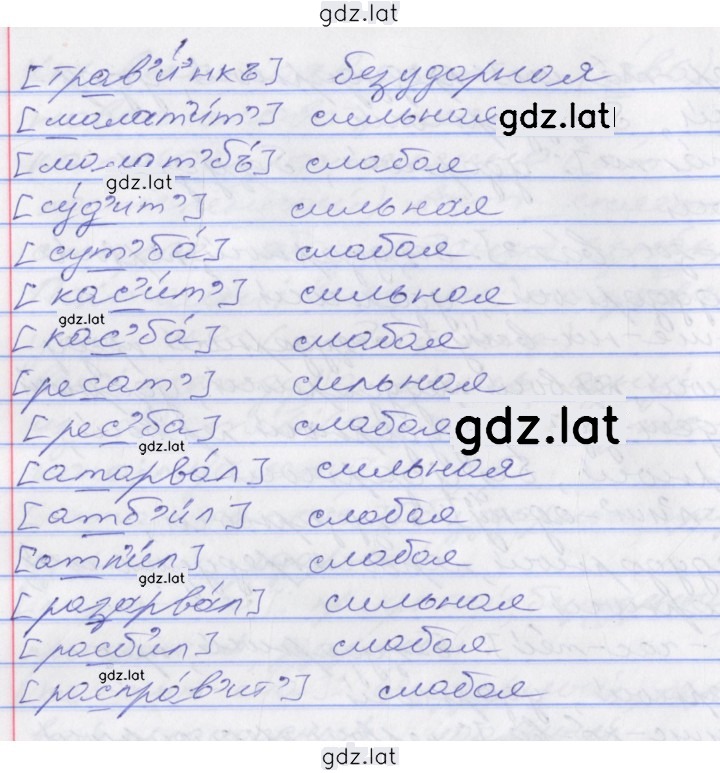 gdz.lat
[трав'и́нкъ] безударная
[малат'и́т'] сильная gdz.lat
[малат'бь́] слабая
gdz.lat
[су́д'ит'] сильная
[сут'ба́] слабая
[кас'и́т'] сильная
gdz.lat
[кас'ба́] слабая
[ресат'] сильная
[рес'ба] слабая gdz.lat
gdz.lat
[атарва́л] сильная
[атб'и́л] слабая
[атпи́л] слабая
gdz.lat
[разарва́л] сильная
[расби́л] слабая
gdz.lat
[распра́в'ит'] слабая
gdz.lat